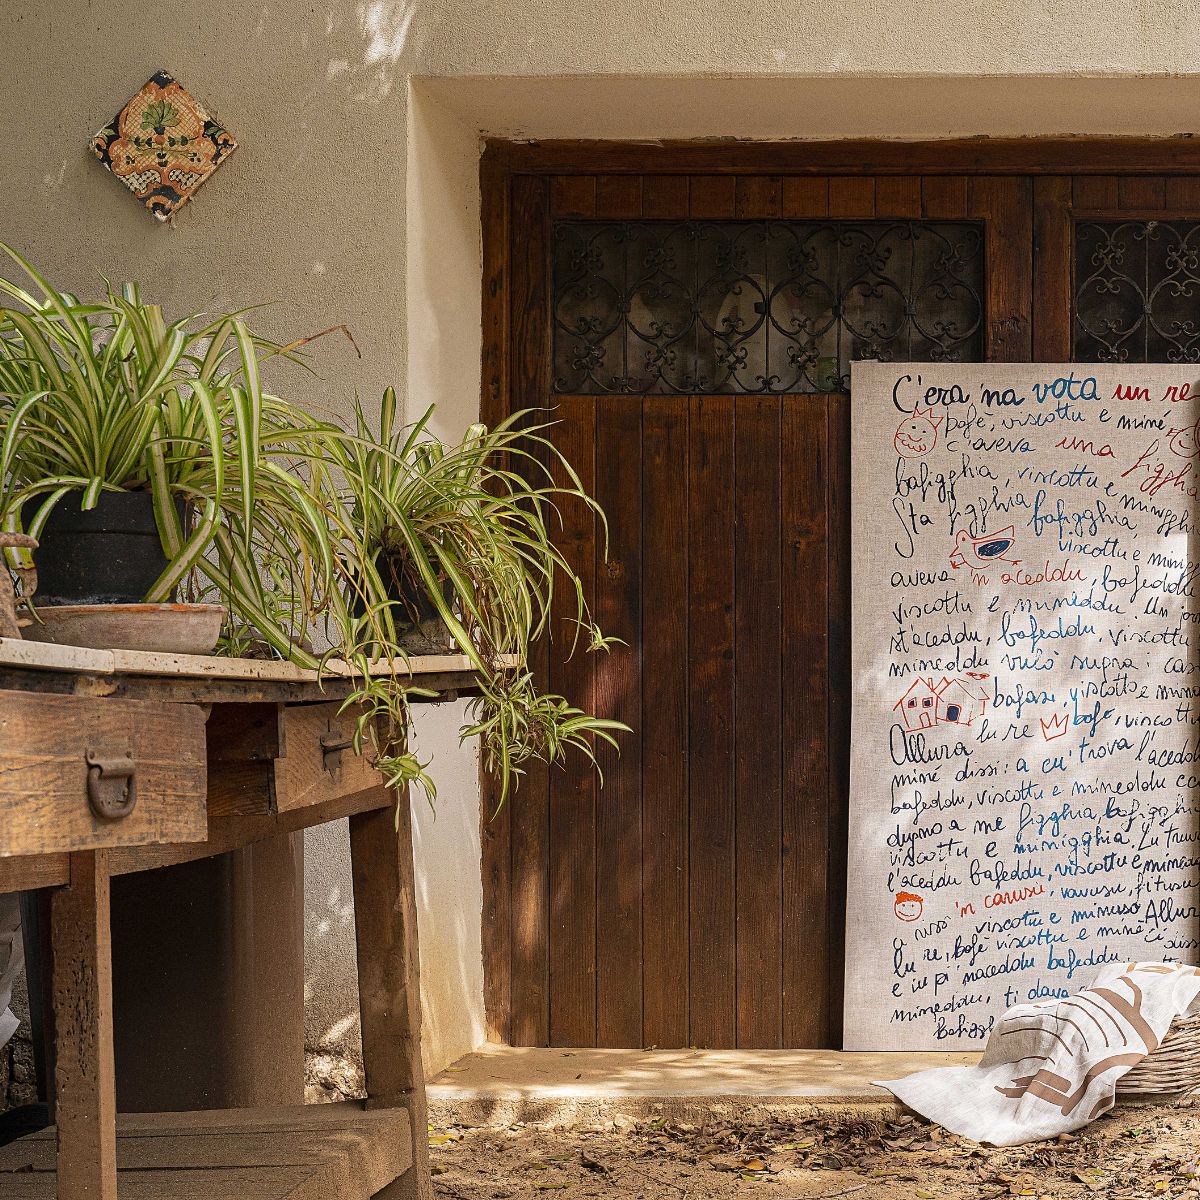 C'era 'na vota un re
bafè, viscottu e minè
c'aveva una figghia
bafigghia, viscottu e minigghia
Sta figghia bafigghia,
viscottu e mini
aveva 'n aceddu, bafeddu
viscottu e mineddu Un jor
st'aceddu, bafeddu, viscottu
mineddu vulò supra i cas
bafasi, viscotto e mini
Allura lu re bafè, viscottu
minè dissi: a cu' trova l'aceddu
bafeddu, viscottu e mineddu cci
dugno a me figghia, bafigghia
viscottu e minigghia. Lu truv
l'aceddu bafeddu, viscottu e mineddu
'n carusu, vavusu, fitusu
a viscottu e minuso Allura
lu re, bafè viscottu e minè ci diss
e iu pi 'naceddu bafeddu,
mineddu, ti dava
bafiggh